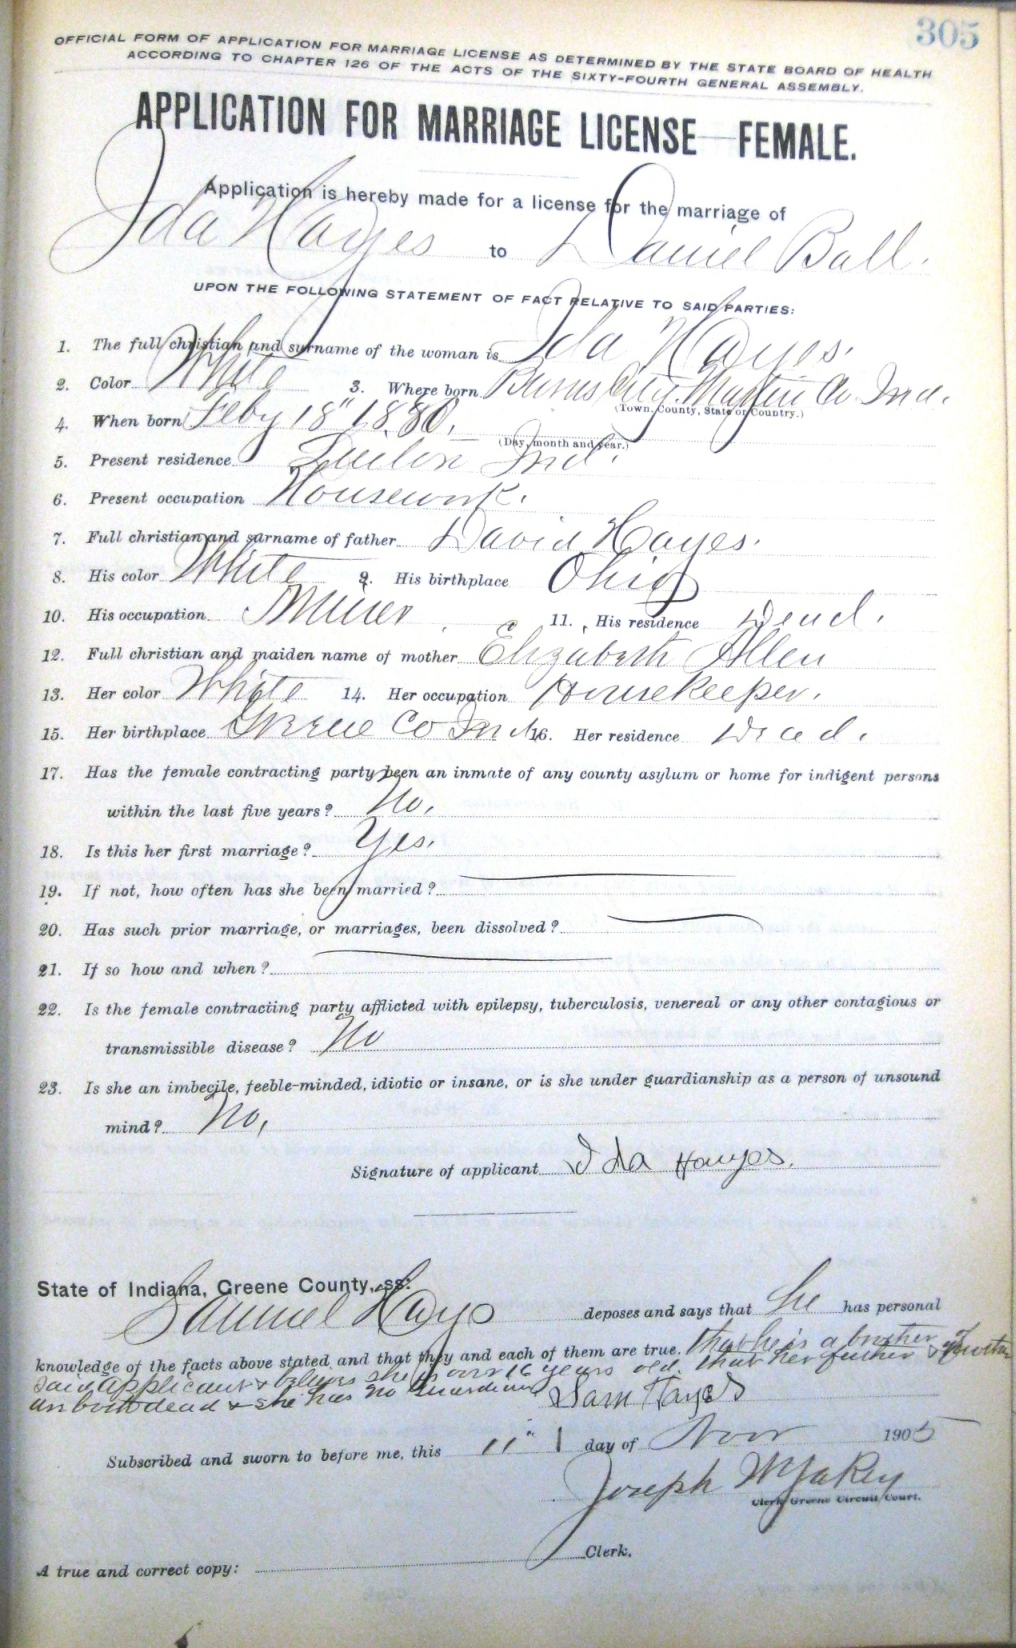 305
OFFICIAL FORM OF APPLICATION FOR MARRIAGE LICENSE AS DETERMINED BY THE STATE BOARD OF HEALTH
ACCORDING TO CHAPTER 126 OF THE ACTS OF THE SIXTY-FOURTH GENERAL ASSEMBLY.
APPLICATION FOR MARRIAGE LICENSE—FEMALE.
Application is hereby made for a license for the marriage of
Ida Hayes to Daniel Ball.
UPON THE FOLLOWING STATEMENT OF FACT RELATIVE TO SAID PARTIES:
1. The full christian and surname of the woman is Ida Hayes.
2. Color White 3. Where born Burns City. Martin Co. Ind.
(Town, County, State or Country.)
4. When born Feby 18" 1880.
(Day, month and year.)
5. Present residence Ind.
6. Present occupation Housework.
7. Full christian and surname of father David Hayes.
8. His color White 9. His birthplace Ohio
10. His occupation Miner 11. His residence Dead.
12. Full christian and maiden name of mother Elizabeth Allen
13. Her color White 14. Her occupation Housekeeper.
15. Her birthplace Greene Co Ind. 16. Her residence Dead.
17. Has the female contracting party been an inmate of any county asylum or home for indigent persons
within the last five years? No.
18. Is this her first marriage? Yes.
19. If not, how often has she been married?
20. Has such prior marriage, or marriages, been dissolved?
21. If so how and when?
22. Is the female contracting party afflicted with epilepsy, tuberculosis, venereal or any other contagious or
transmissible disease? No
23. Is she an imbecile, feeble-minded, idiotic or insane, or is she under guardianship as a person of unsound
mind? No,
Signature of applicant Ida Hayes.
State of Indiana, Greene County, ss:
Samuel Hays deposes and says that he has personal
knowledge of the facts above stated, and that they and each of them are true. that he is a brother of
said applicant & believes she is over 16 years old, that her father & mother
are both dead & she has no Guardian Sam Hayes
Subscribed and sworn to before me, this 11" day of Nov 1905
Joseph W Yakey
Clerk Greene Circuit Court.
Clerk.
A true and correct copy: